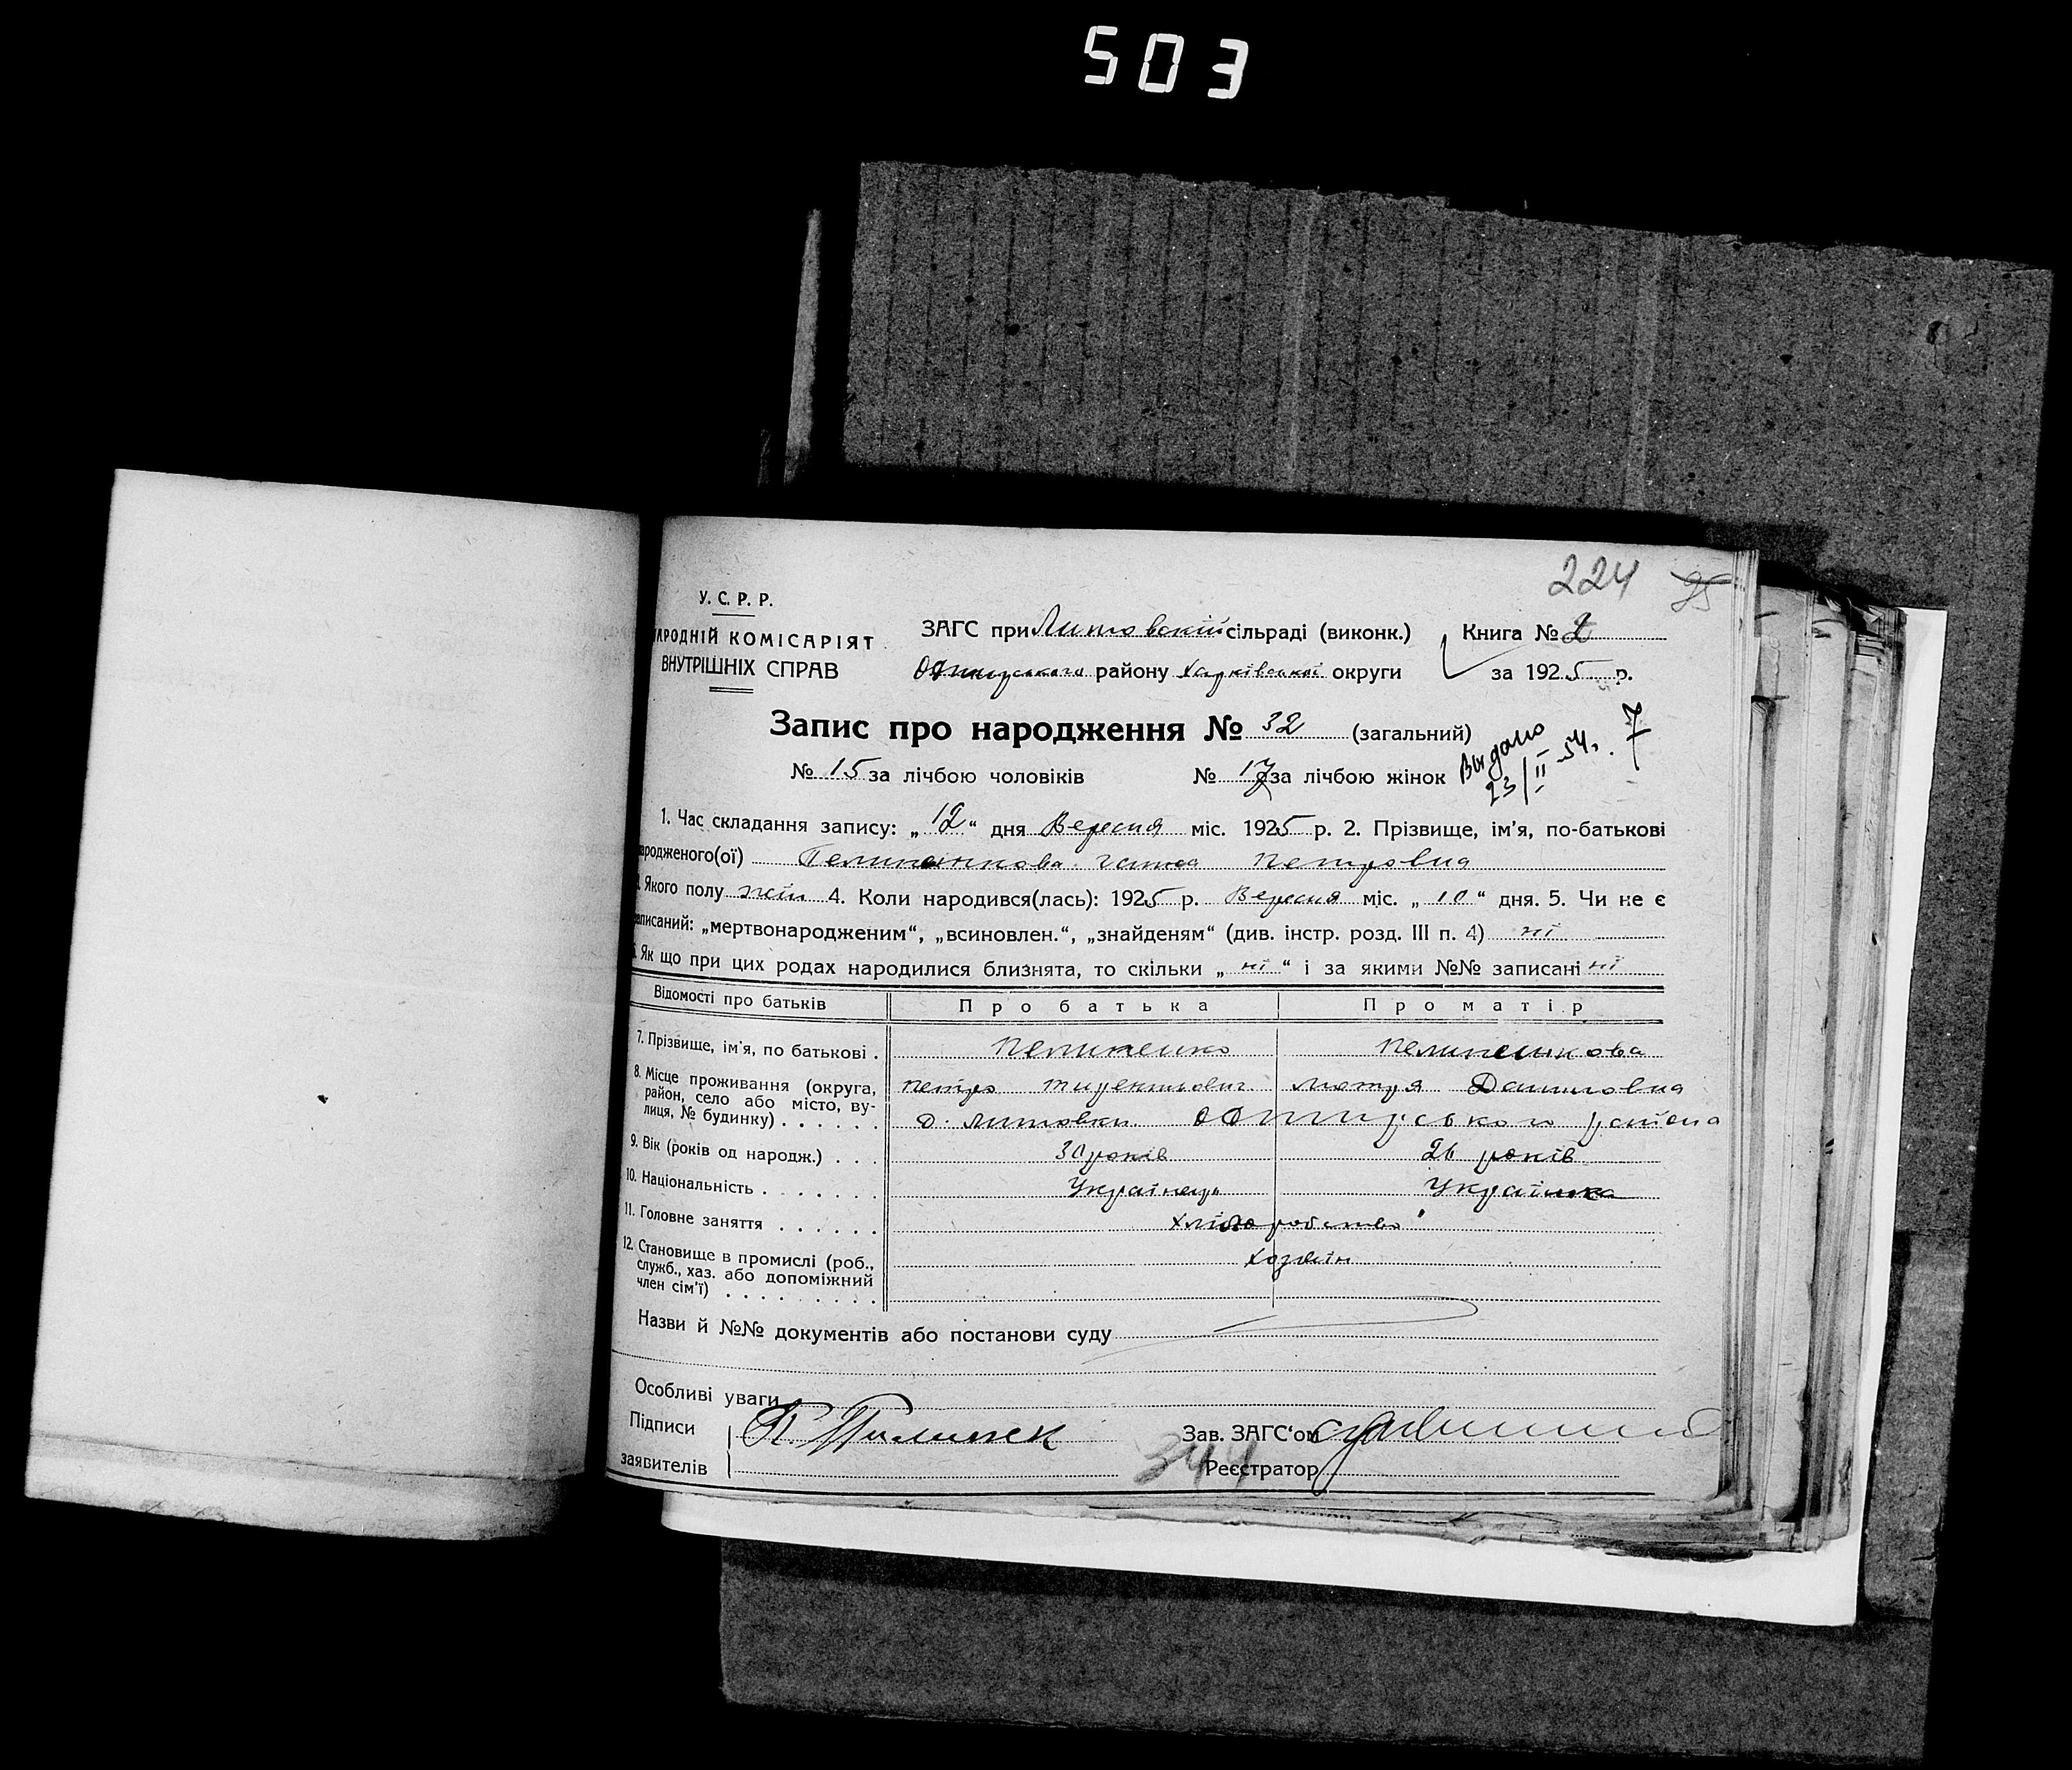 503
224 95
У. С. Р. Р.
НАРОДНІЙ КОМІСАРІЯТ
ВНУТРІШНІХ СПРАВ
ЗАГС при Литовській сільраді (виконк.) Книга № 2
району Харківської округи за 1925 р.
Запис про народження № 32 (загальний)
Выдано 23/II 54. 7
№ 15 за лічбою чоловіків № 17 за лічбою жінок
1. Час складання запису: „12“ дня Вересня міс. 1925 р. 2. Прізвище, ім'я, по-батькові
народженого(ої) Петровна
3. Якого полу жін 4. Коли народився(лась): 1925 р. Вересня міс. „10“ дня. 5. Чи не є
записаний: „мертвонародженим“, „всиновлен.“, „знайденям“ (див. інстр. розд. III п. 4) ні
6. Як що при цих родах народилися близнята, то скільки „ні“ і за якими №№ записані ні
Відомості про батьків Про батька Про матір
7. Прізвище, ім'я, по батькові . Пелипенко Пелипенкова
8. Місце проживання (округа, Петро Мотря Даниловна
район, село або місто, ву-
лиця, № будинку) . . . . . . Литовки района
9. Вік (років од народж.) . . . 30 років 26 років
10. Національність . . . . . . . Українець Українка
11. Головне заняття . . . . . . Хліборобство
12. Становище в промислі (роб., Хозяїн
служб., хаз. або допоміжний
член сім'ї) . . . . . . . . .
Назви й №№ документів або постанови суду
Особливі уваги
Підписи П. Зав. ЗАГС'ом
заявителів 344 Реєстратор